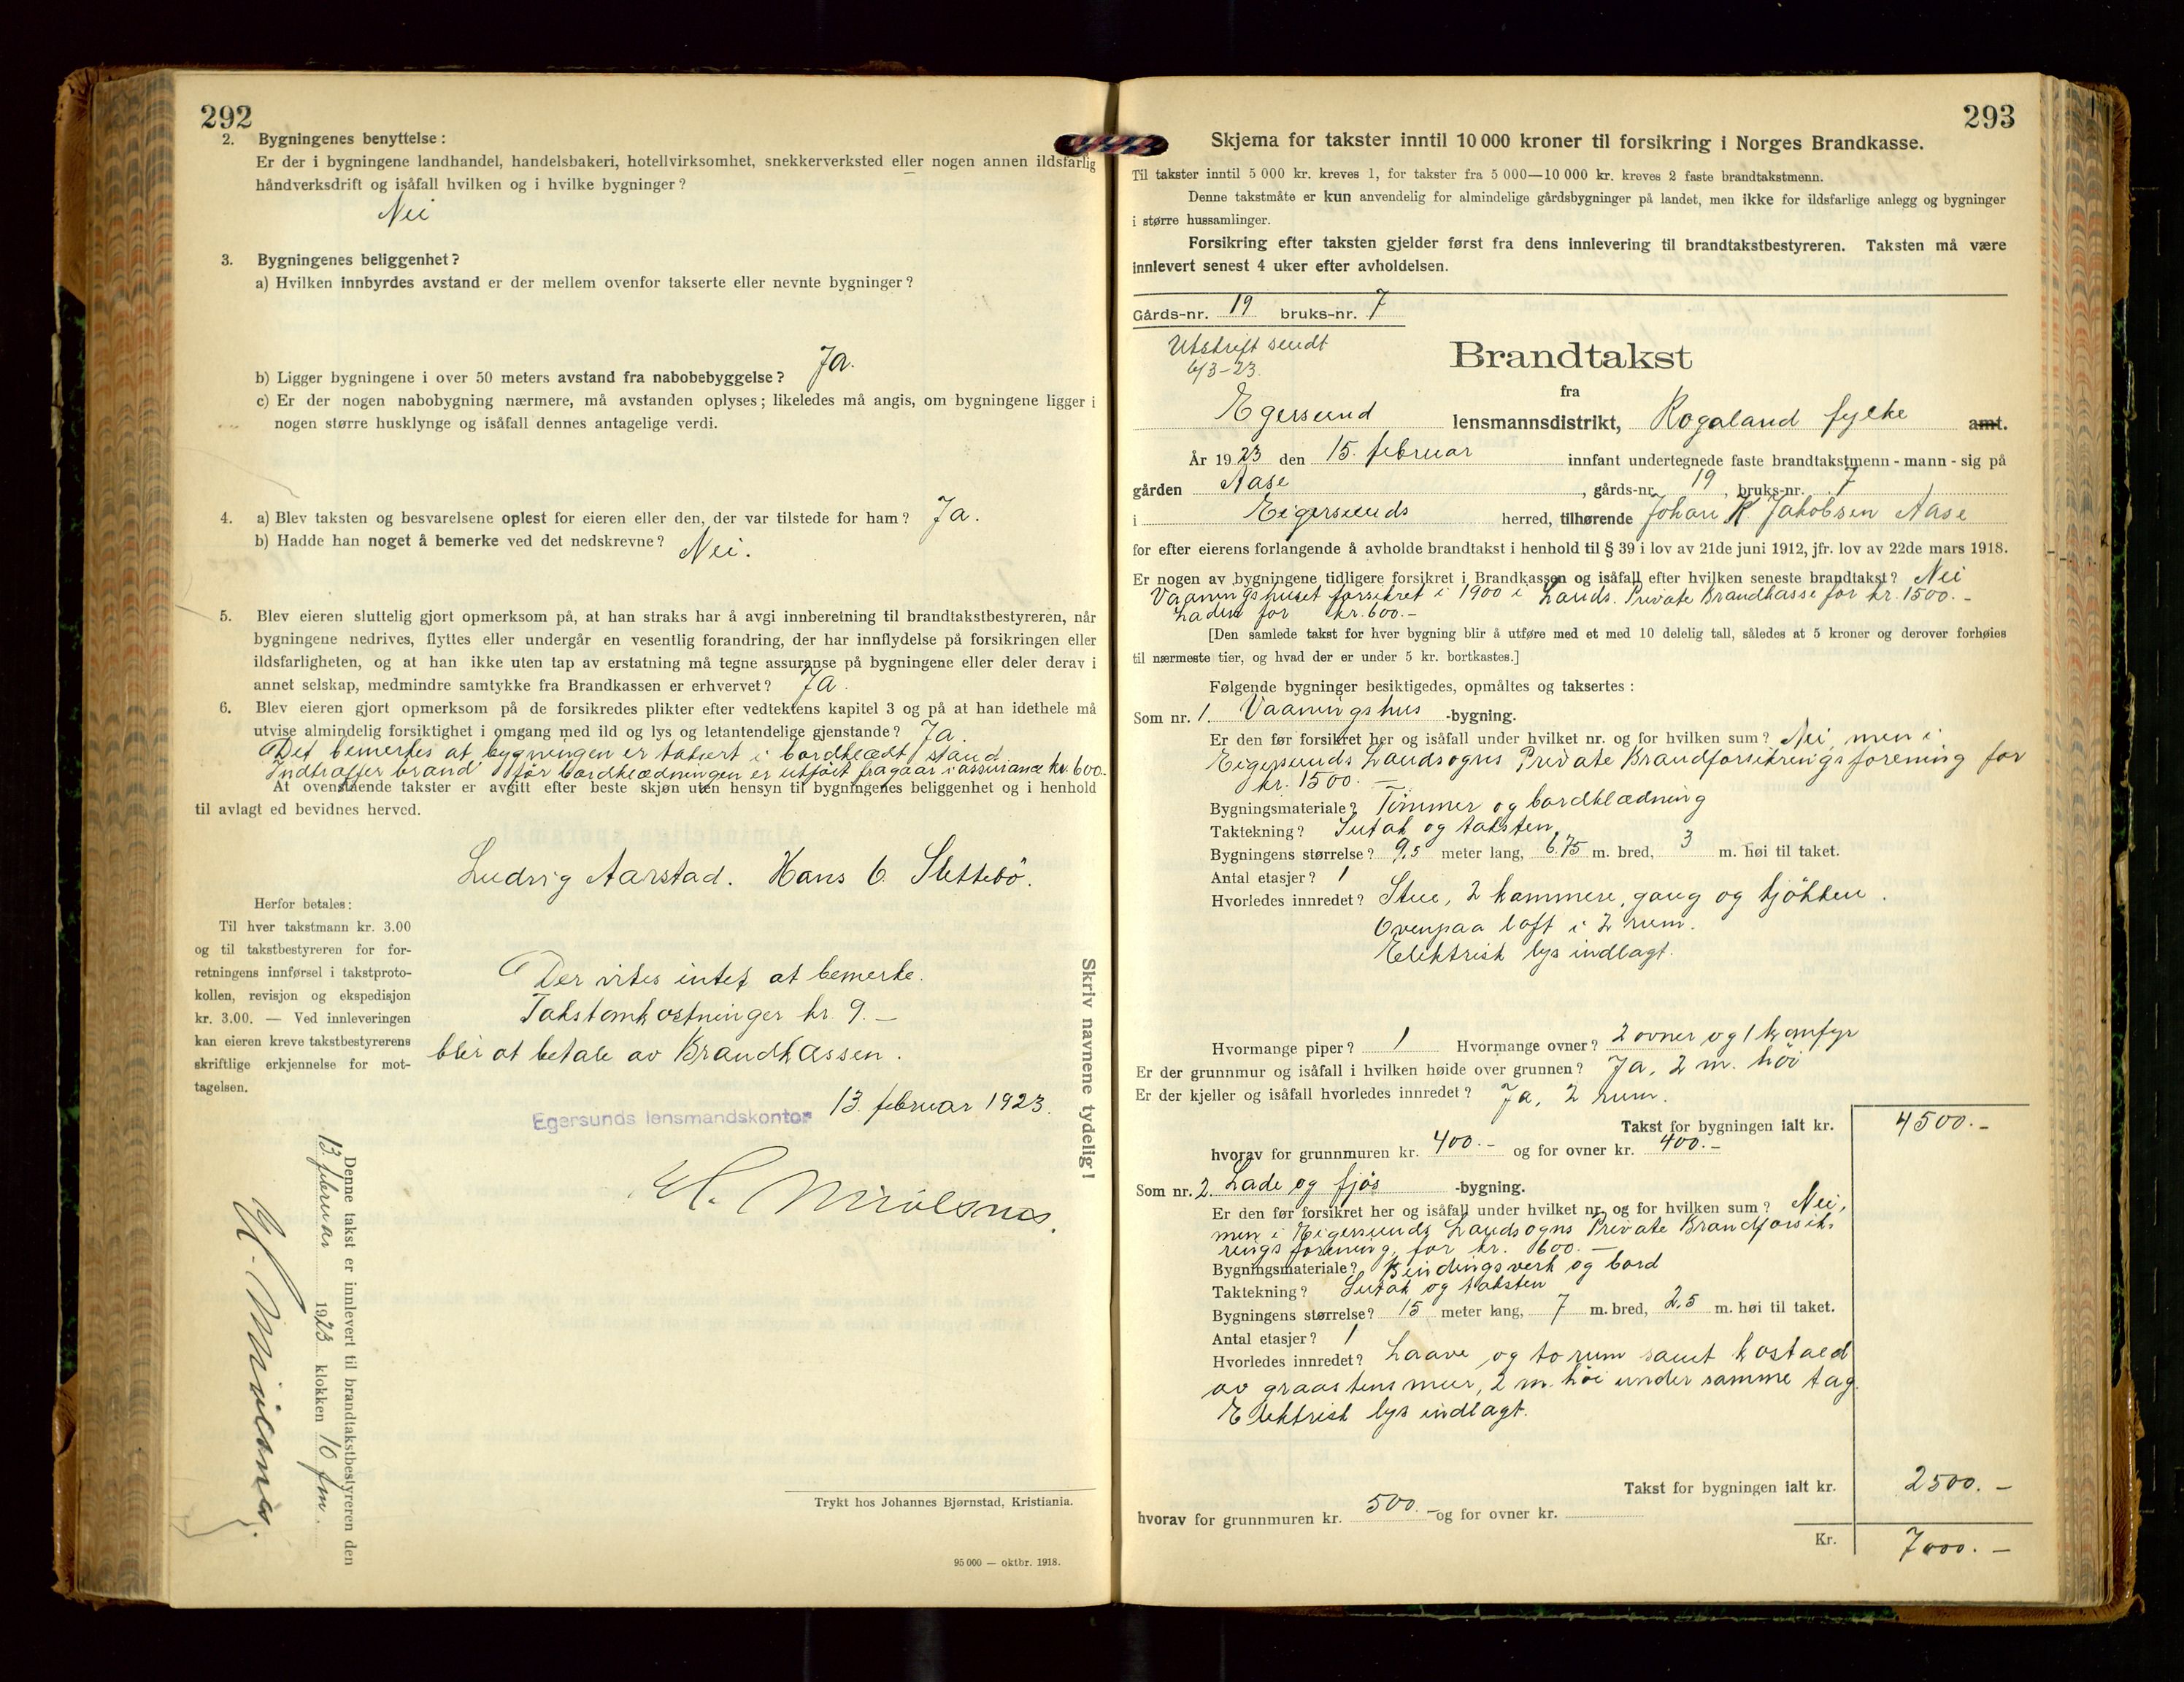 292
2. Bygningenes benyttelse:
Er der i bygningene landhandel, handelsbakeri, hotellvirksomhet, snekkerverksted eller nogen annen ildsfarlig
håndverksdrift og isåfall hvilken og i hvilke bygninger?
Nei
3. Bygningenes beliggenhet?
a) Hvilken innbyrdes avstand er der mellem ovenfor takserte eller nevnte bygninger?
b) Ligger bygningene i over 50 meters avstand fra nabobebyggelse? Ja.
c) Er der nogen nabobygning nærmere, må avstanden oplyses; likeledes må angis, om bygningene ligger i
nogen større husklynge og isåfall dennes antagelige verdi.
4. a) Blev taksten og besvarelsene oplest for eieren eller den, der var tilstede for ham? Ja.
b) Hadde han noget å bemerke ved det nedskrevne? Nei.
5. Blev eieren sluttelig gjort opmerksom på, at han straks har å avgi innberetning til brandtakstbestyreren, når
bygningene nedrives, flyttes eller undergår en vesentlig forandring, der har innflydelse på forsikringen eller
ildsfarligheten, og at han ikke uten tap av erstatning må tegne assuranse på bygningene eller deler derav i
annet selskap, medmindre samtykke fra Brandkassen er erhvervet? Ja.
6. Blev eieren gjort opmerksom på de forsikredes plikter efter vedtektens kapitel 3 og på at han idethele må
utvise almindelig forsiktighet i omgang med ild og lys og letantendelige gjenstande? Ja.
Det bemerkes at bygningen er taksert i bordklædt stand.
Indtræffer brand før bordklædningen er utført fragaar i assurance kr. 600.-
At ovenstående takster er avgitt efter beste skjøn uten hensyn til bygningenes beliggenhet og i henhold
til avlagt ed bevidnes herved.
Ludvig Aarstad. Hans O. Slettebö.
Herfor betales:
Til hver takstmann kr. 3.00
og til takstbestyreren for for-
retningens innførsel i takstproto-
kollen, revisjon og ekspedisjon
kr. 3.00. — Ved innleveringen
kan eieren kreve takstbestyrerens
skriftlige erkjennelse for mot-
tagelsen.
Der vites intet at bemerke.
Takstomkostninger kr. 9.–
blir at betale av Brandkassen.
Egersunds lensmandskontor 13. februar 1923.
Skriv navnene tydelig!
Denne takst er innlevert til brandtakstbestyreren den
13. februar 1923 klokken 10 fm.
Trykt hos Johannes Bjørnstad, Kristiania.
95 000 — oktbr. 1918.
293
Skjema for takster inntil 10 000 kroner til forsikring i Norges Brandkasse.
Til takster inntil 5 000 kr. kreves 1, for takster fra 5 000—10 000 kr. kreves 2 faste brandtakstmenn.
Denne takstmåte er kun anvendelig for almindelige gårdsbygninger på landet, men ikke for ildsfarlige anlegg og bygninger
i større hussamlinger.
Forsikring efter taksten gjelder først fra dens innlevering til brandtakstbestyreren. Taksten må være
innlevert senest 4 uker efter avholdelsen.
Gårds-nr. 19 bruks-nr. 7
Utskrift sendt
6/3-23.
Brandtakst
fra
Egersund lensmannsdistrikt, Rogaland fylke amt.
År 1923 den 15. februar innfant undertegnede faste brandtakstmenn - mann - sig på
gården Aase, gårds-nr. 19, bruks-nr. 7
i Eigersunds herred, tilhørende Johan K Jakobsen Aase
for efter eierens forlangende å avholde brandtakst i henhold til § 39 i lov av 21de juni 1912, jfr. lov av 22de mars 1918.
Er nogen av bygningene tidligere forsikret i Brandkassen og isåfall efter hvilken seneste brandtakst? Nei
Vaaningshuset forsikret i 1900 i Lands. Private Brandkasse for kr. 1500.–
Laden for kr. 600.–
[Den samlede takst for hver bygning blir å utføre med et med 10 delelig tall, således at 5 kroner og derover forhøies
til nærmeste tier, og hvad der er under 5 kr. bortkastes.]
Følgende bygninger besiktigedes, opmåltes og taksertes:
Som nr. 1. Vaanings hus -bygning.
Er den før forsikret her og isåfall under hvilket nr. og for hvilken sum? Nei, men i
Eigersunds Landsogns Private Brandforsikringsforening for
kr. 1500.–
Bygningsmateriale? Tömmer og bordklædning
Taktekning? Sutak og taksten
Bygningens størrelse? 9,5 meter lang, 6.75 m. bred, 3 m. høi til taket.
Antal etasjer? 1
Hvorledes innredet? Stue, 2 kammere, gang og kjökken.
Ovenpaa loft i 2 rum.
Elektrisk lys indlagt.
Hvormange piper? 1 Hvormange ovner? 2 ovner og 1 komfyr
Er der grunnmur og isåfall i hvilken høide over grunnen? Ja, 2 m. höi
Er der kjeller og isåfall hvorledes innredet? Ja, 2 rum.
Takst for bygningen ialt kr. 4500.–
hvorav for grunnmuren kr. 400.– og for ovner kr. 400.–
Som nr. 2. Lade og fjös -bygning.
Er den før forsikret her og isåfall under hvilket nr. og for hvilken sum? Nei,
men i Eigersunds Landsogns Private Brandforsik-
ringsforening, for kr. 600.–
Bygningsmateriale? Bindingsverk og bord
Taktekning? Sutak og taksten
Bygningens størrelse? 15 meter lang, 7 m. bred, 2,5 m. høi til taket.
Antal etasjer? 1
Hvorledes innredet? Laave og to rum samt kostald
av graastens mur, 2 m. höi under samme tag.
Elektrisk lys indlagt.
Takst for bygningen ialt kr. 2500.–
hvorav for grunnmuren kr. 500.– og for ovner kr.
Kr. 7000.–